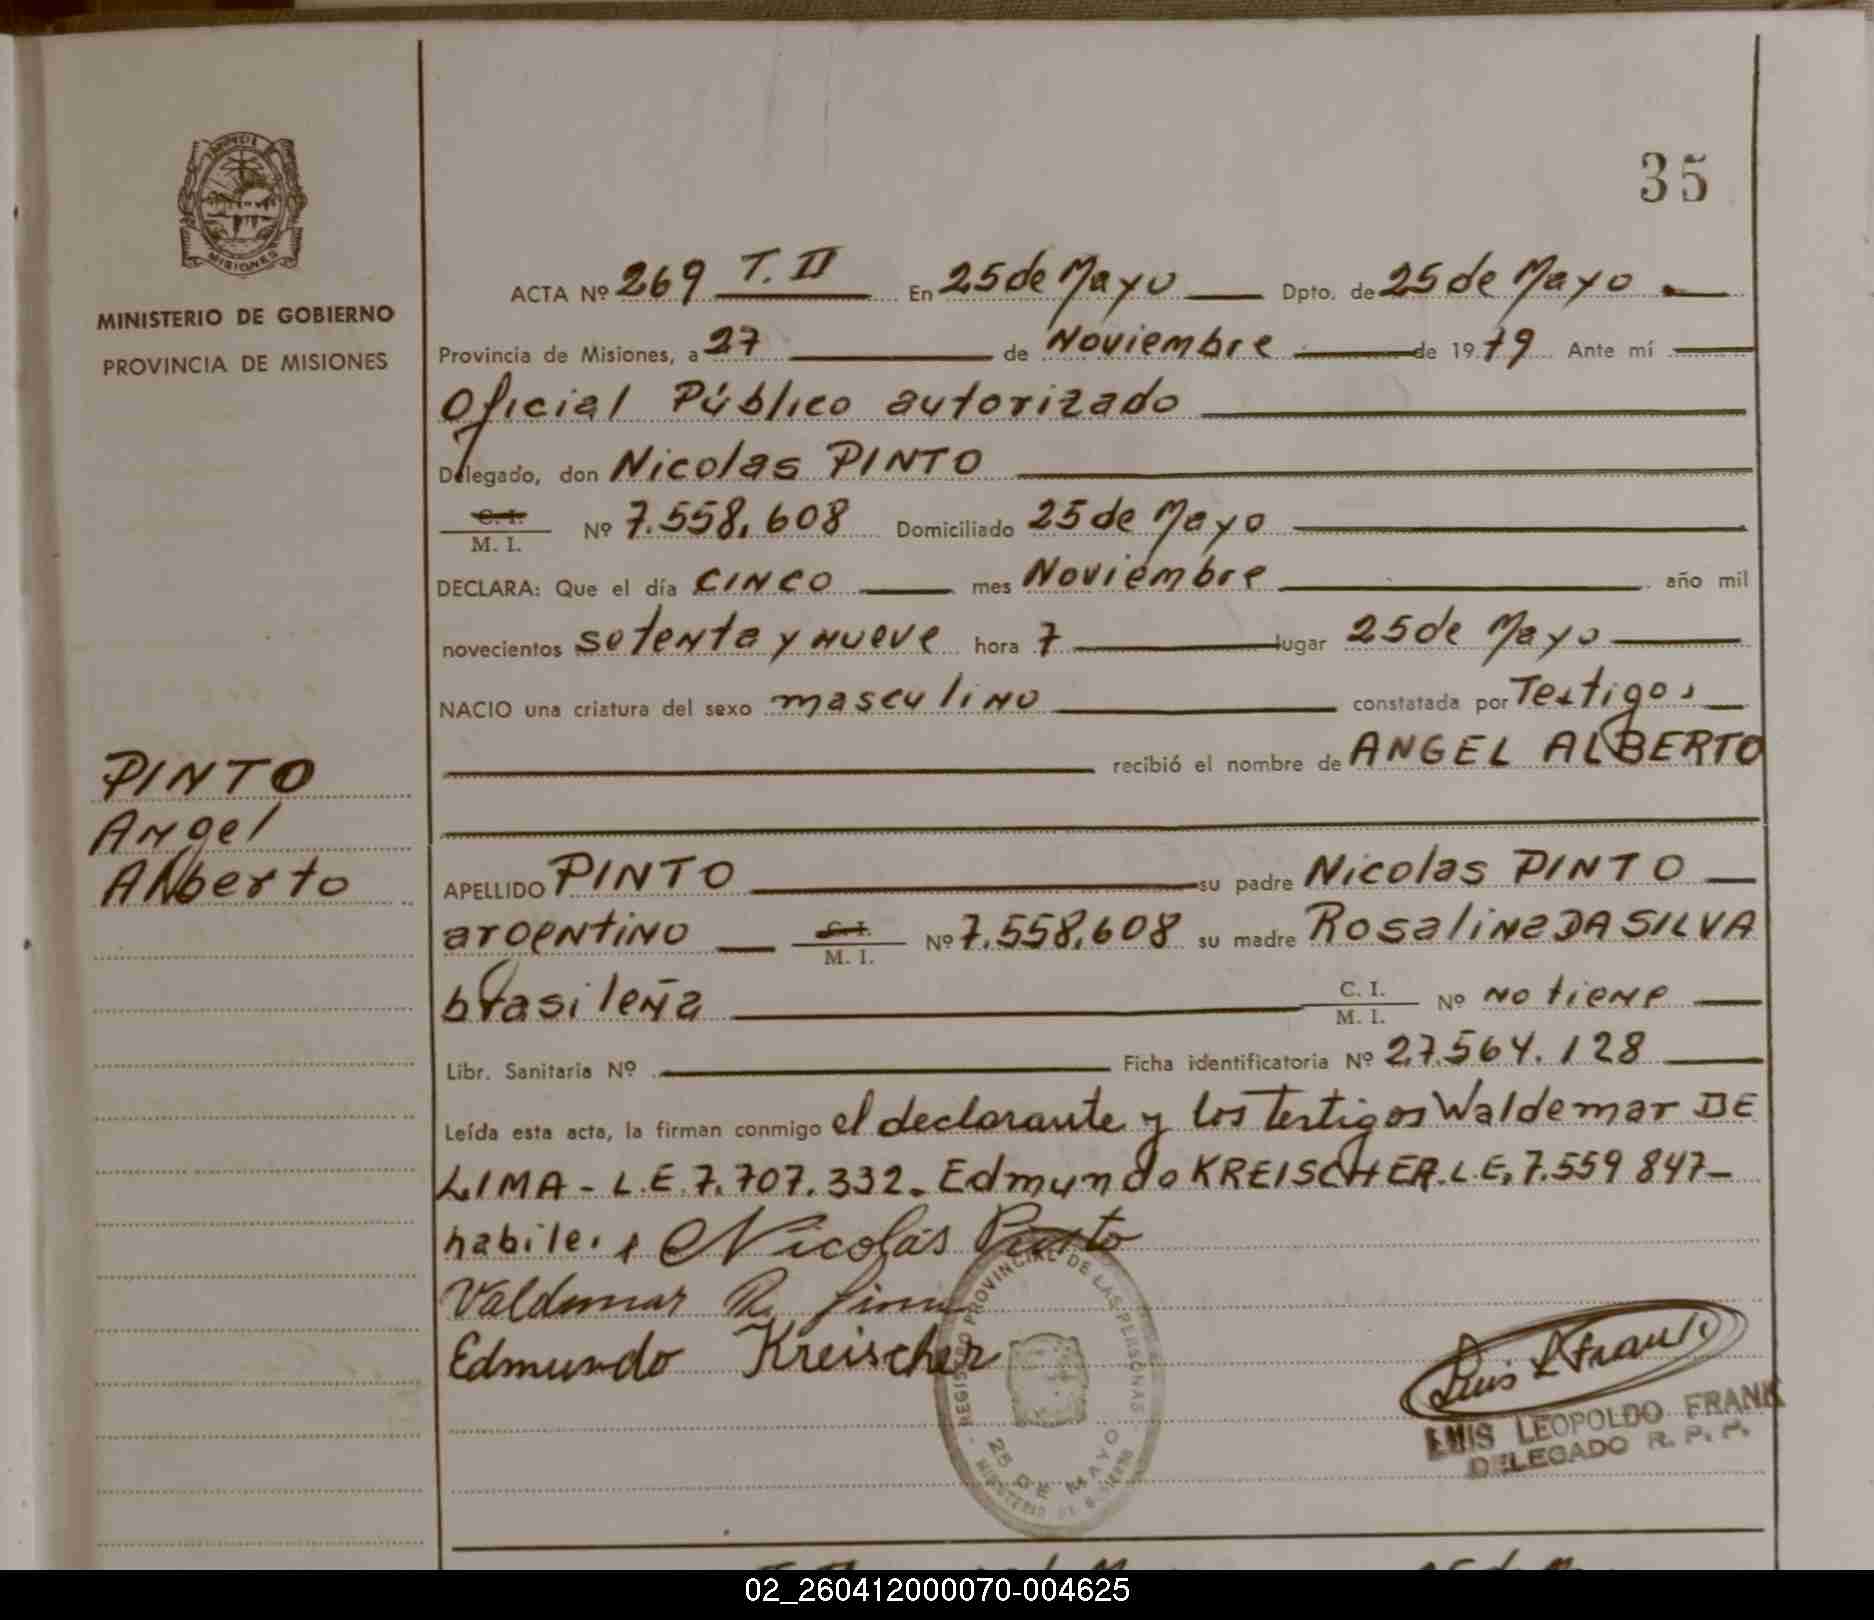 35
PROVINCIA DE
MISIONES
MINISTERIO DE GOBIERNO
PROVINCIA DE MISIONES
ACTA Nº 269 T. II En 25 de Mayo Dpto. de 25 de Mayo
Provincia de Misiones, a 27 de Noviembre de 1979 Ante mí
Oficial Público autorizado
Delegado, don Nicolas PINTO
C. I. M. I. Nº 7.558.608 Domiciliado 25 de Mayo
DECLARA: Que el día CINCO mes Noviembre año mil
novecientos setenta y nueve hora 7 lugar 25 de Mayo
NACIO una criatura del sexo masculino constatada por Testigos
recibió el nombre de ANGEL ALBERTO
PINTO
Angel
Alberto
APELLIDO PINTO su padre Nicolas PINTO
argentino C. I. M. I. Nº 7.558.608 su madre Rosalina DA SILVA
brasileña C. I. M. I. Nº no tiene
Libr. Sanitaria Nº Ficha identificatoria Nº 27.564.128
Leída esta acta, la firman conmigo el declarante y los testigos Waldemar DE
LIMA - L.E. 7.707.332. Edmundo KREISCHER. L.E. 7.559 847-
habiles Nicolás Pinto
Valdemar
Edmundo Kreischer
REGISTRO PROVINCIAL DE LAS PERSONAS
25 DE MAYO
MINISTERIO DE GOBIERNO
Luis L Frank
LUIS LEOPOLDO FRANK
DELEGADO R. P. P.
02_260412000070-004625